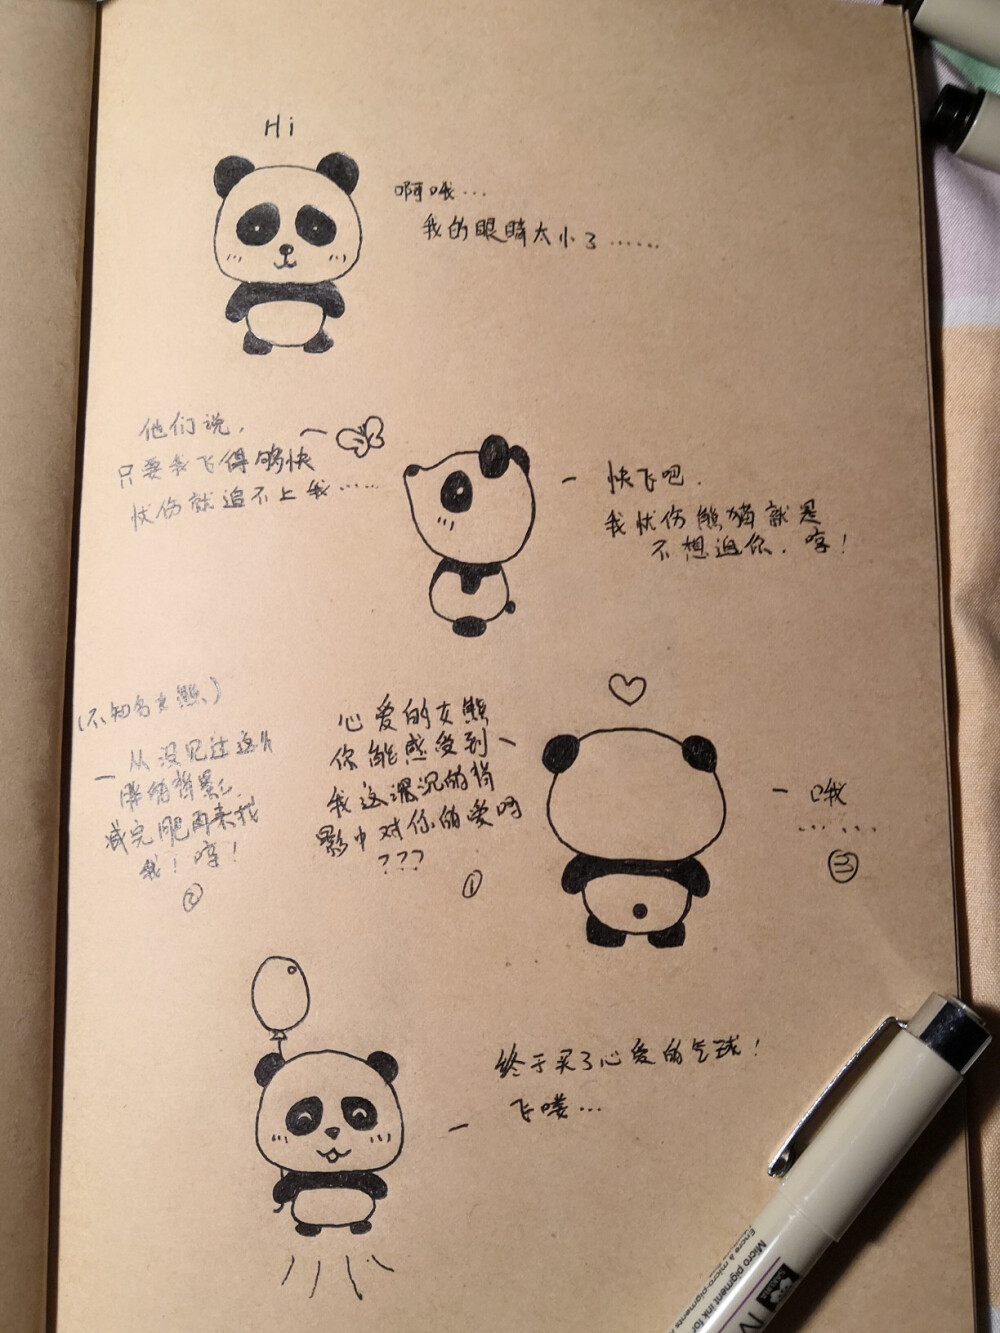 Hi
啊哦…
我的眼睛太小了……
他们说，
只要我飞得够快
忧伤就追不上我……
快飞吧，
我忧伤熊猫就是
不想追你，哼！
(不知名女熊)
从没见过这么
胖的背影，
减完肥再来找
我！哼！
②
心爱的女熊
你能感受到
我这深沉的背
影中对你的爱吗
???
①
哦
……
③
终于买了心爱的气球！
飞喽…
Micro pigment ink for
Encre à micro-pigments